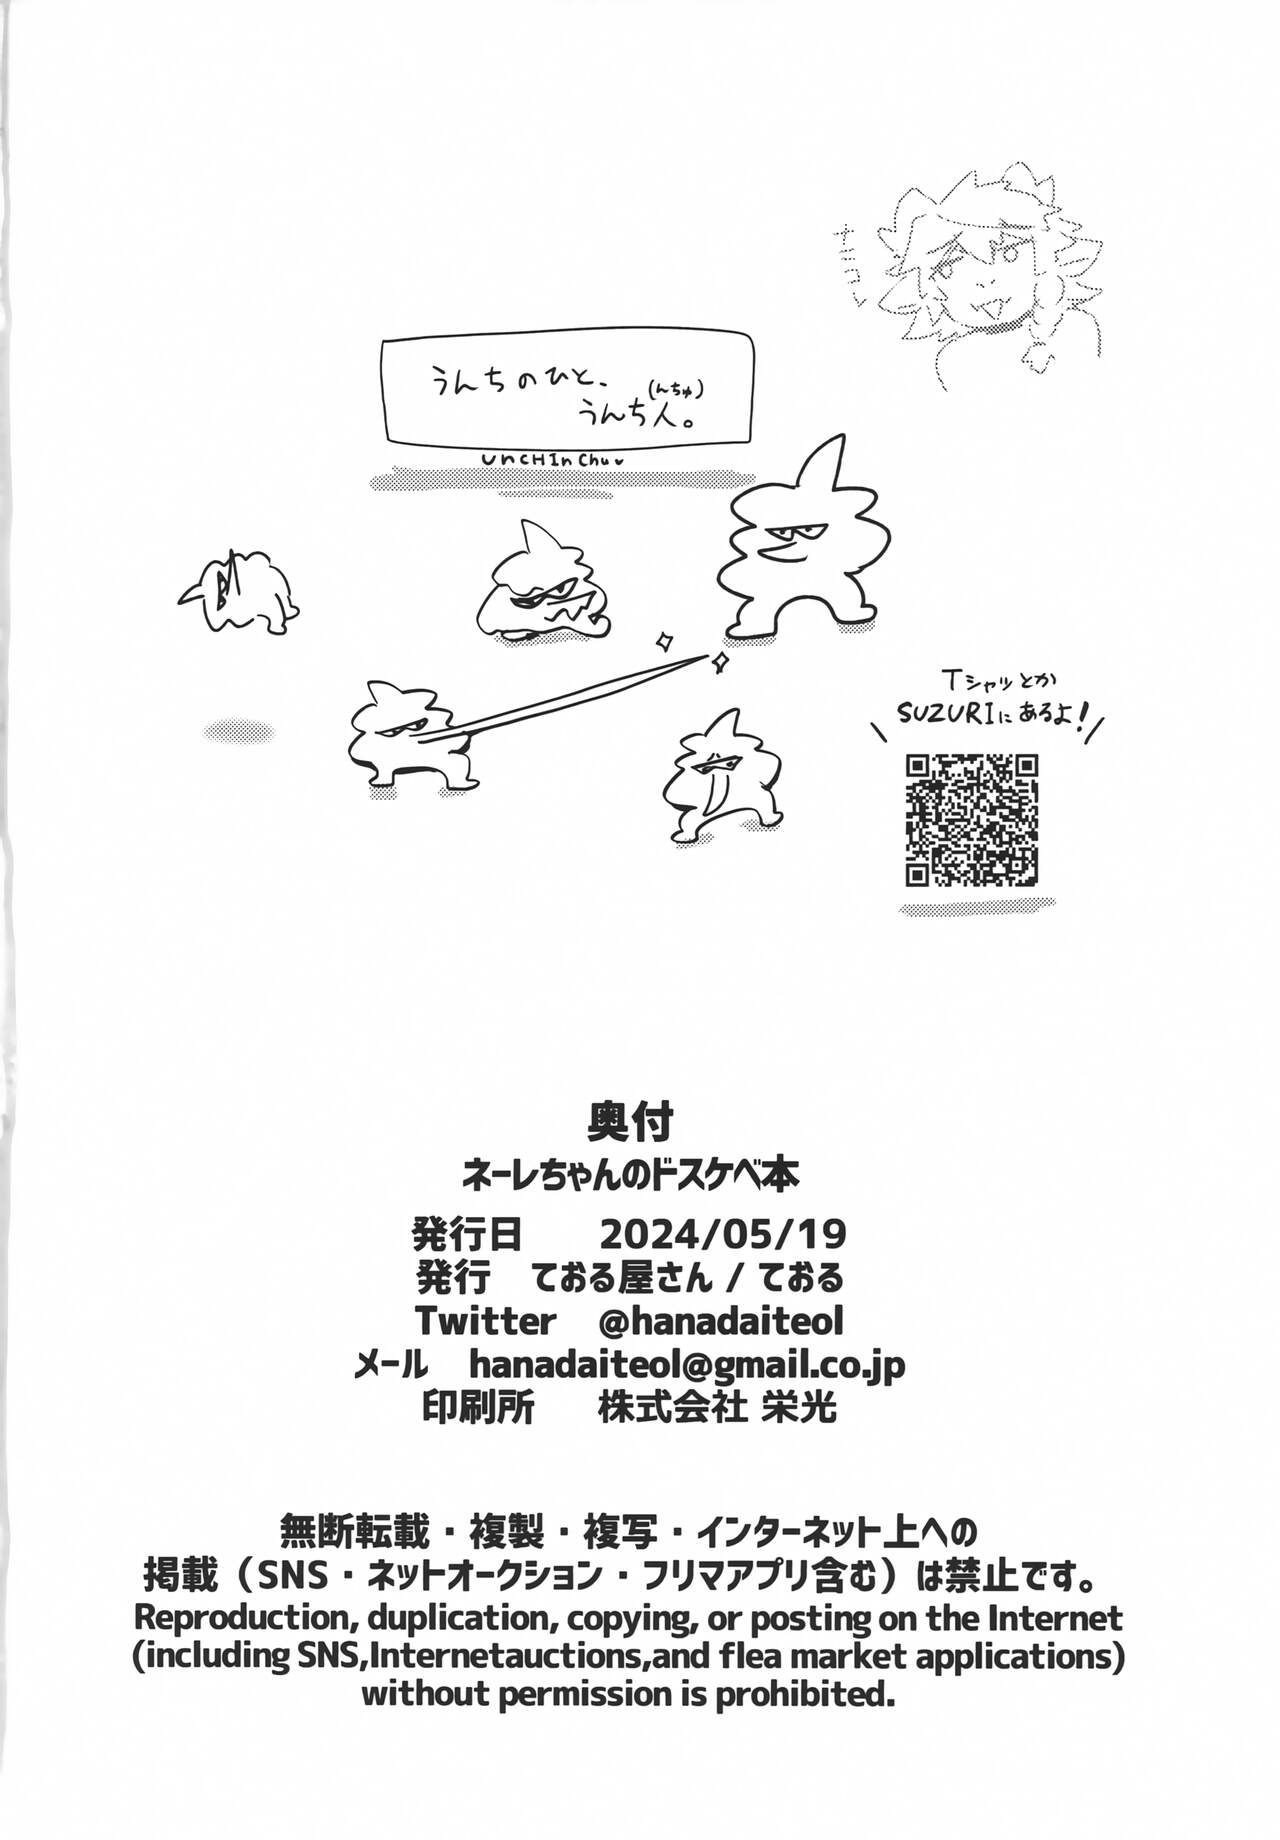 ナニコレ
うんちのひと、
うんち人。(んちゅ)
UnCHInChu
Tシャツとか
SUZURIにあるよ!
奥付
ネーレちゃんのドスケベ本
発行日 2024/05/19
発行 ておる屋さん / ておる
Twitter @hanadaiteol
メール hanadaiteol@gmail.co.jp
印刷所 株式会社 栄光
無断転載・複製・複写・インターネット上への
掲載(SNS・ネットオークション・フリマアプリ含む)は禁止です。
Reproduction, duplication, copying, or posting on the Internet
(including SNS,Internetauctions,and flea market applications)
without permission is prohibited.